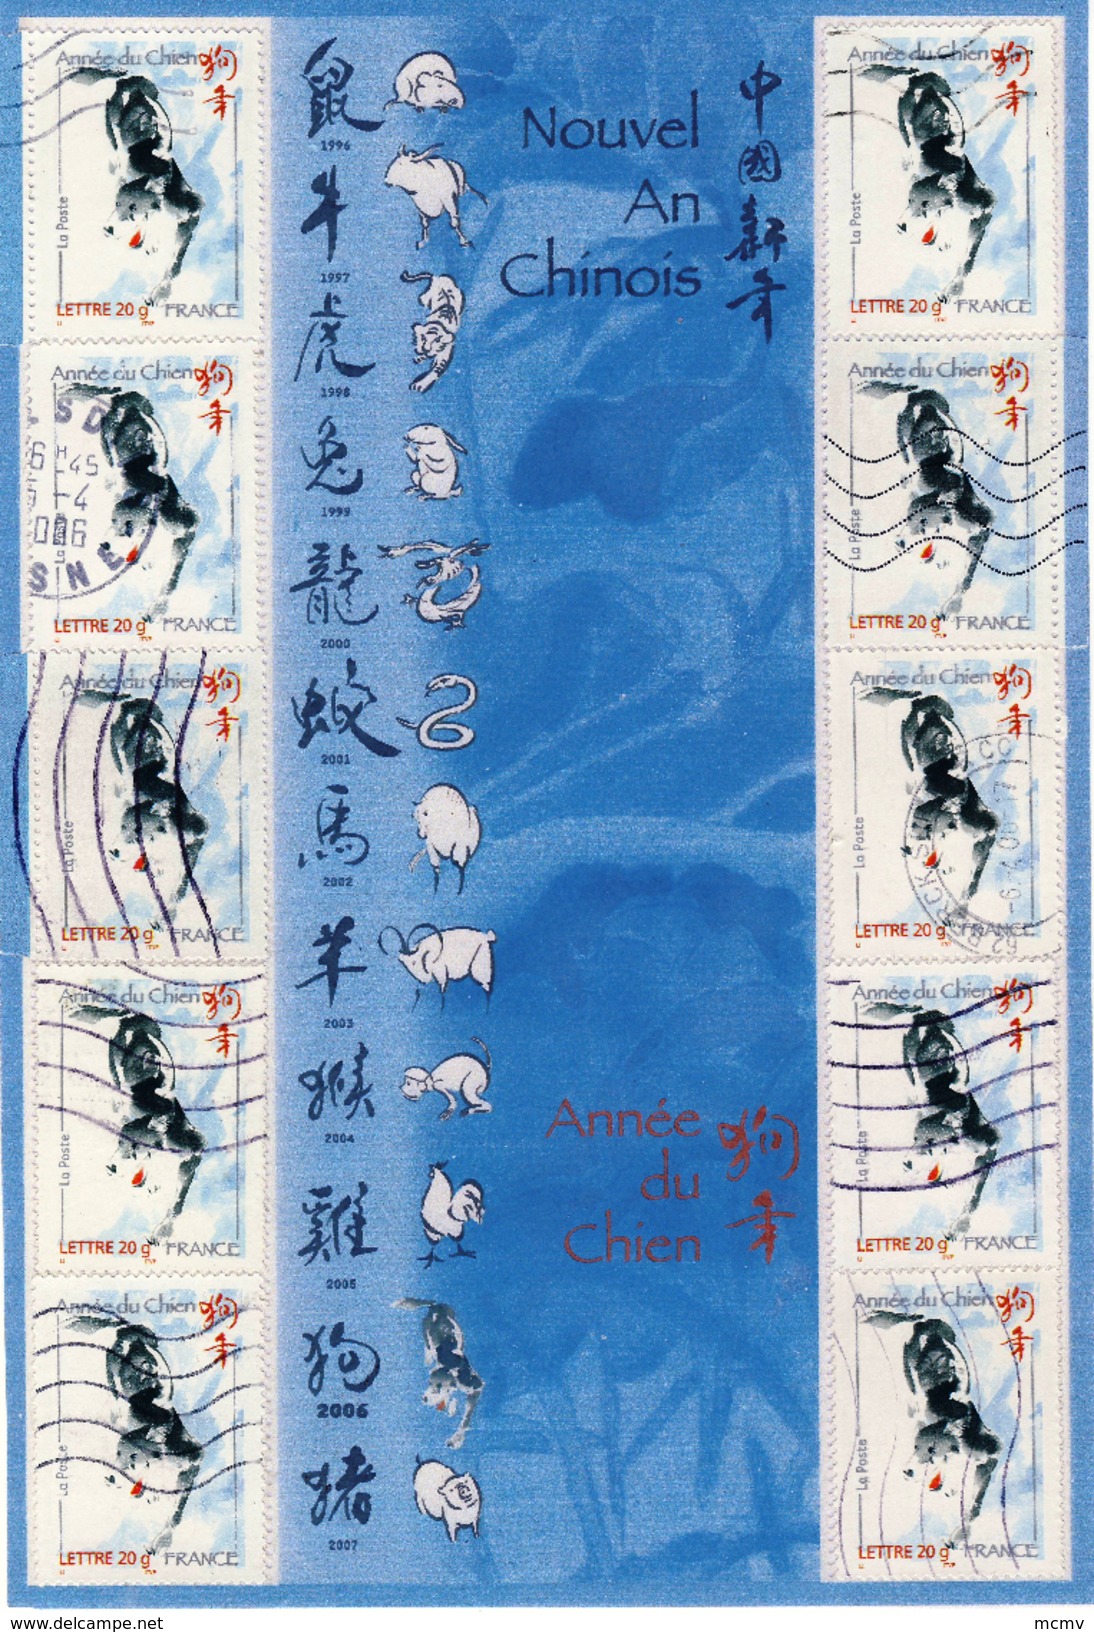 Année du Chien
狗年
La Poste
LETTRE 20 g
FRANCE
Année du Chien
狗年
La Poste
LETTRE 20 g
FRANCE
Année du Chien
狗年
La Poste
LETTRE 20 g
FRANCE
Année du Chien
狗年
La Poste
LETTRE 20 g
FRANCE
Année du Chien
狗年
La Poste
LETTRE 20 g
FRANCE
鼠
1996
牛
1997
虎
1998
兔
1999
龍
2000
蛇
2001
馬
2002
羊
2003
猴
2004
雞
2005
狗
2006
猪
2007
Nouvel
An
Chinois
中國新年
Année
du
Chien
狗年
Année du Chien
狗年
La Poste
LETTRE 20 g
FRANCE
Année du Chien
狗年
La Poste
LETTRE 20 g
FRANCE
Année du Chien
狗年
La Poste
LETTRE 20 g
FRANCE
Année du Chien
狗年
La Poste
LETTRE 20 g
FRANCE
Année du Chien
狗年
La Poste
LETTRE 20 g
FRANCE
www.delcampe.net
mcmv